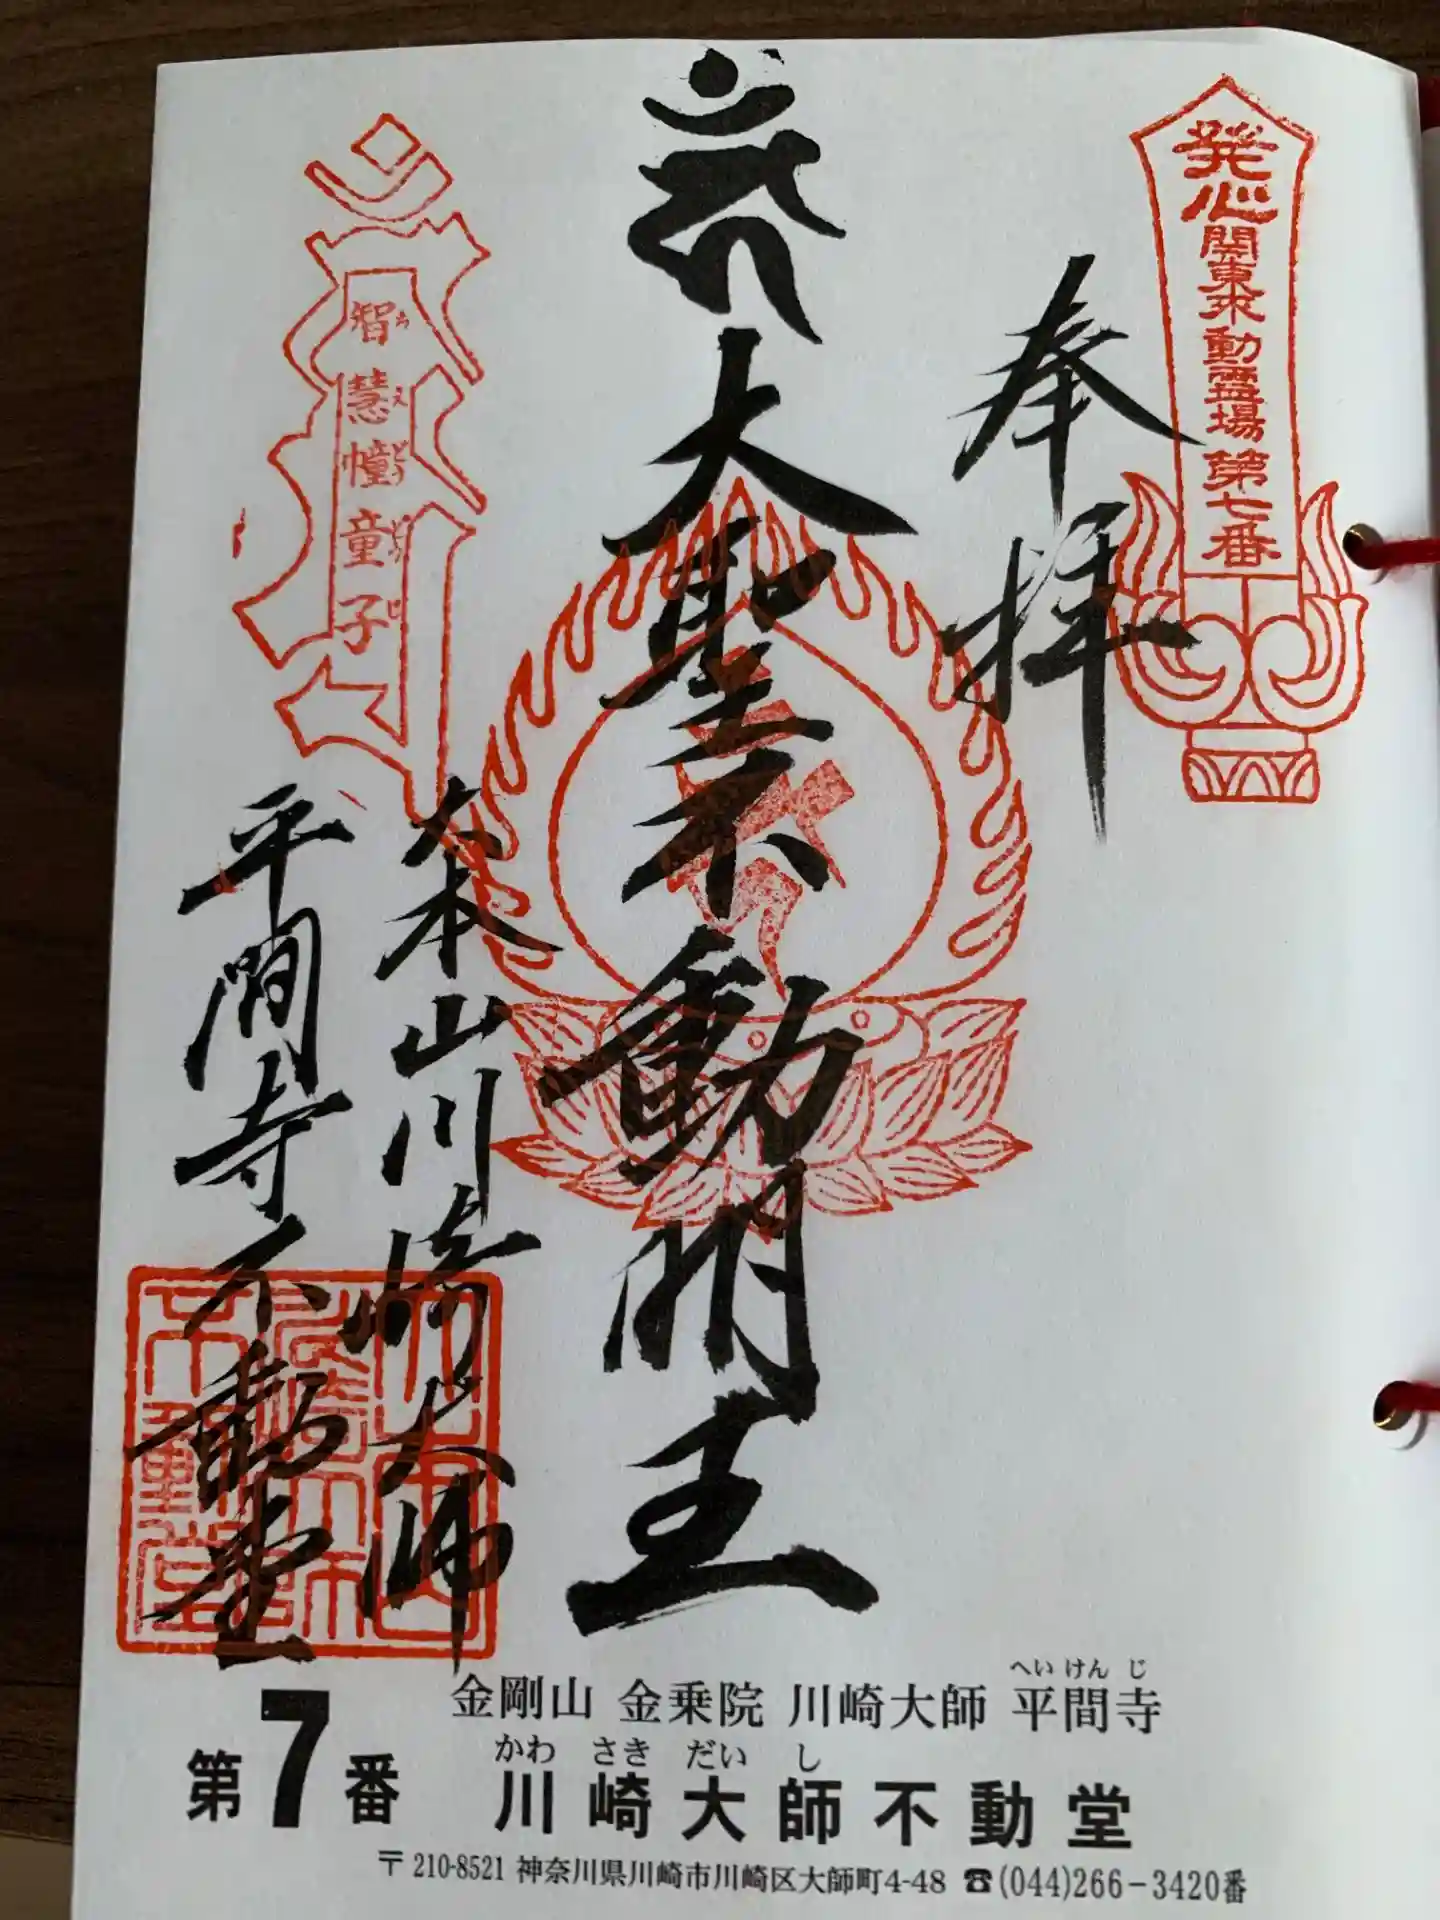 発心
関東不動霊場第七番
奉拝
大聖不動明王
大本山川崎大師
平間寺不動堂
智慧幢童子
ちえどうどうじ
へいけんじ
金剛山 金乗院 川崎大師 平間寺
かわさきだいし
第7番 川崎大師不動堂
〒210-8521 神奈川県川崎市川崎区大師町4-48 ☎(044)266-3420番